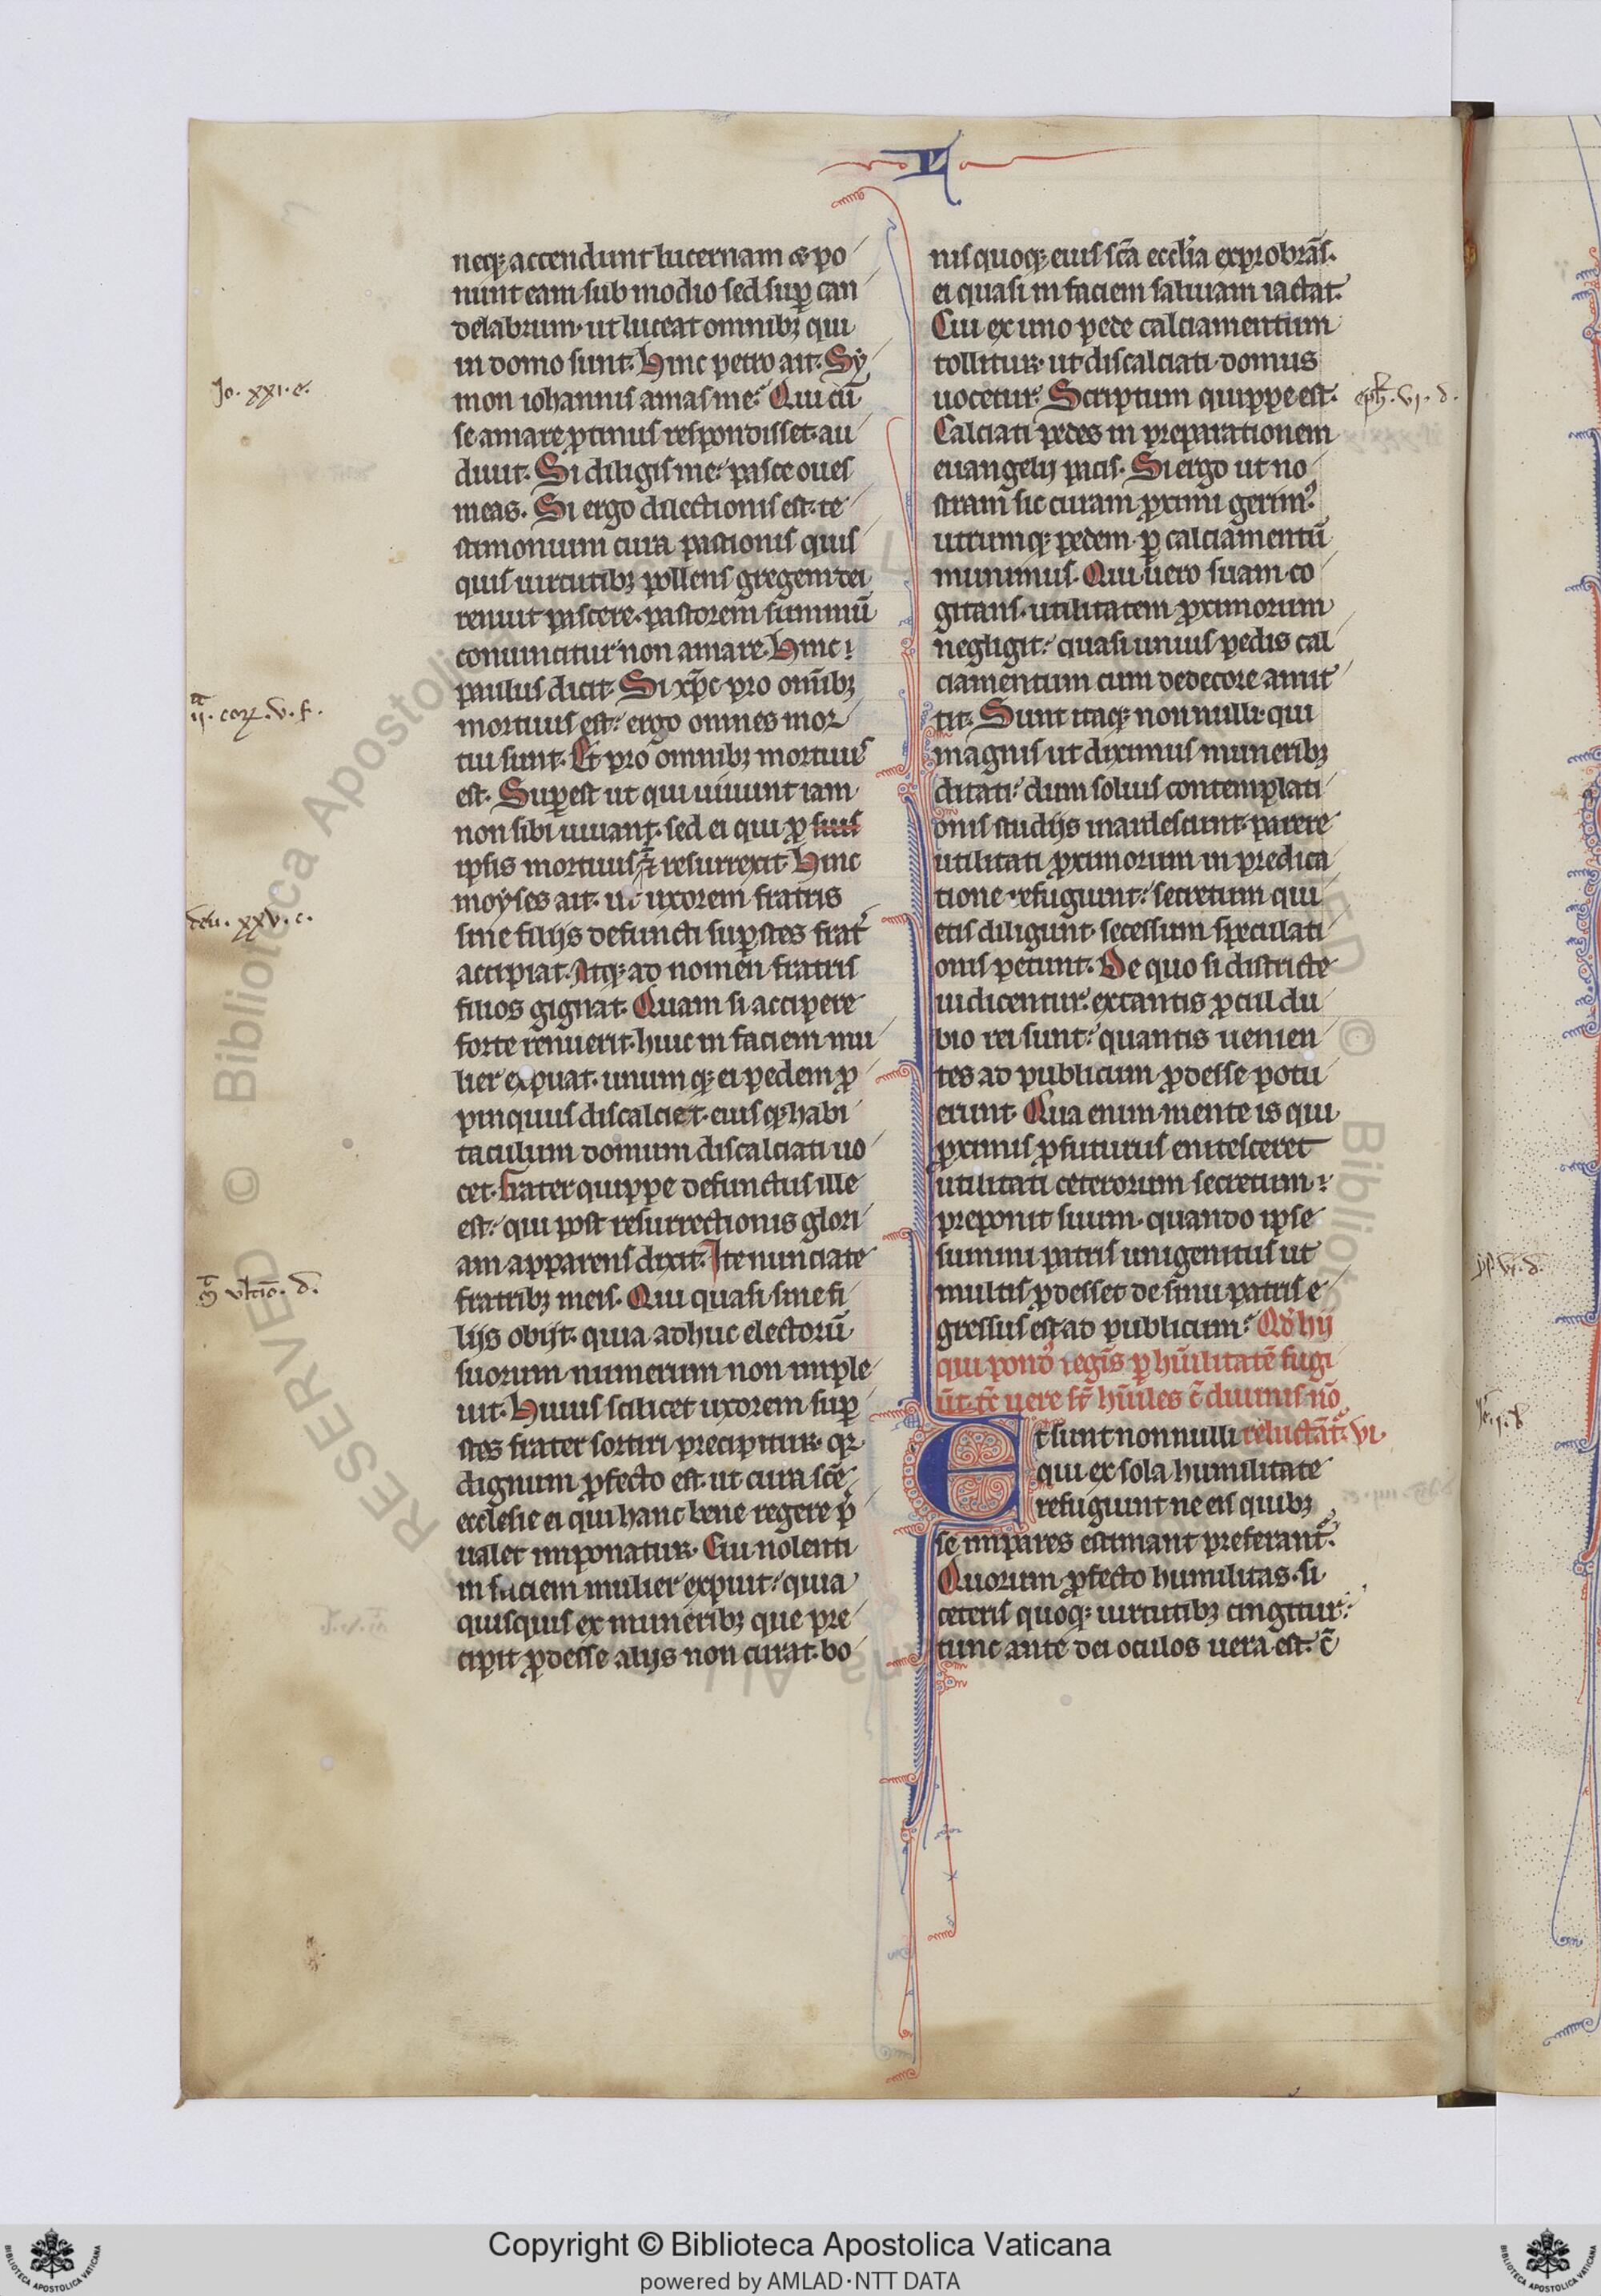 L
neq; accendunt lucernam & po
nunt eam sub modio sed sup̱ can
delabrum· ut luceat omnibꝫ qui
in domo sunt. Hinc petro ait. Sy
mon iohannis amas me? Qui cū
se amare ꝓtinus respondisset· au
diuit. Si diligis me· pasce oues
meas. Si ergo dilectionis est· te
stimonium cura pastionis quis
quis uirtutibꝫ pollens gregem dei
renuit pascere· pastorem summū
conuincitur non amare. Hinc
paulus dicit. Si xp̄c pro om̄ibꝫ
mortuus est· ergo omnes mor
tui sunt. Et pro omnibꝫ mortuus
est. Sup̱est ut qui uiuunt iam
non sibi uiuant· sed ei qui ꝓ suis
ipsis mortuus ⁊ resurrexit. Hinc
moyses ait· ut uxorem fratris
sine filijs defuncti sup̱stes frat̄
accipiat. Atq; ad nomen fratris
filios gignat. Quam si accipere
forte renuerit· huic in faciem mu
lier expuat· unum q; ei pedem ꝓ
pinquus discalciet· eius q; habi
taculum domum discalciati uo
cet. Frater quippe defunctus ille
est· qui post resurrectionis glori
am apparens dixit. Ite nunciate
fratribꝫ meis. Qui quasi sine fi
lijs obijt· quia adhuc electorū
suorum numerum non imple
uit. Huius scilicet uxorem sup̱
stes frater sortiri precipitur· qꝛ
dignum ꝓfecto est· ut cura sc̄e
eccl̄esie ei qui hanc bene regere p̄
ualet imponatur. Cui nolenti
in faciem mulier expuit· quia
quisquis ex muneribꝫ que pre
cipit ꝓdesse alijs non curat· bo
Jo. xxi. e.
ij. corꝝ. v. f.
deu. xxv. c.
vltīo. d.
nis quoq; eius sc̄a eccl̄ia exprobrās·
ei quasi in faciem saliuam iactat.
Cui ex uno pede calciamentum
tollitur· ut discalciati domus
uocetur. Scriptum quippe est.
Calciati pedes in preparationem
euangelij pacis. Si ergo ut no
stram sic curam ꝓximi gerimꝰ
utrumq; pedem p̱ calciamentū
munimus. Qui uero suam co
gitans utilitatem ꝓximorum
negligit· quasi unius pedis cal
ciamentum cum dedecore amit
tit. Sunt itaq; nonnulli qui
magnis ut diximus muneribꝫ
ditati· dum solius contemplati
onis studijs inardescunt· parere
utilitati ꝓximorum in predica
tione refugiunt· secretum qui
etis diligunt· secessum speculati
onis petunt. De quo si districte
iudicentur· ex tantis ꝓcul du
bio rei sunt· quantis uenien
tes ad publicum ꝓdesse potu
erunt. Qua enim mente is qui
ꝓximis ꝓfuturus enitesceret
utilitati ceterorum secretum
preponit suum· quando ipse
summi patris unigenitus ut
multis ꝓdesset de sinu patris e
gressus est ad publicum? Qd̄ hij
qui pondꝰ regīs p̱ hūilitatē fugi
ūt· tc̄ uere sꝉ hūiles c̄ diuinis nō
Et sunt nonnulli reluctāt. vi.
qui ex sola humilitate
refugiunt ne eis quibꝫ
se impares estimant preferant̄.
Quorum ꝓfecto humilitas· si
ceteris quoq; uirtutibꝫ cingitur·
tunc ante dei oculos uera est· c̄
eph. vj. d.
RESERVED © Biblioteca Apostolica
Copyright © Biblioteca Apostolica Vaticana
powered by AMLAD·NTT DATA
BIBLIOTECA APOSTOLICA VATICANA
BIBLIOTECA APOSTOLICA VATICANA